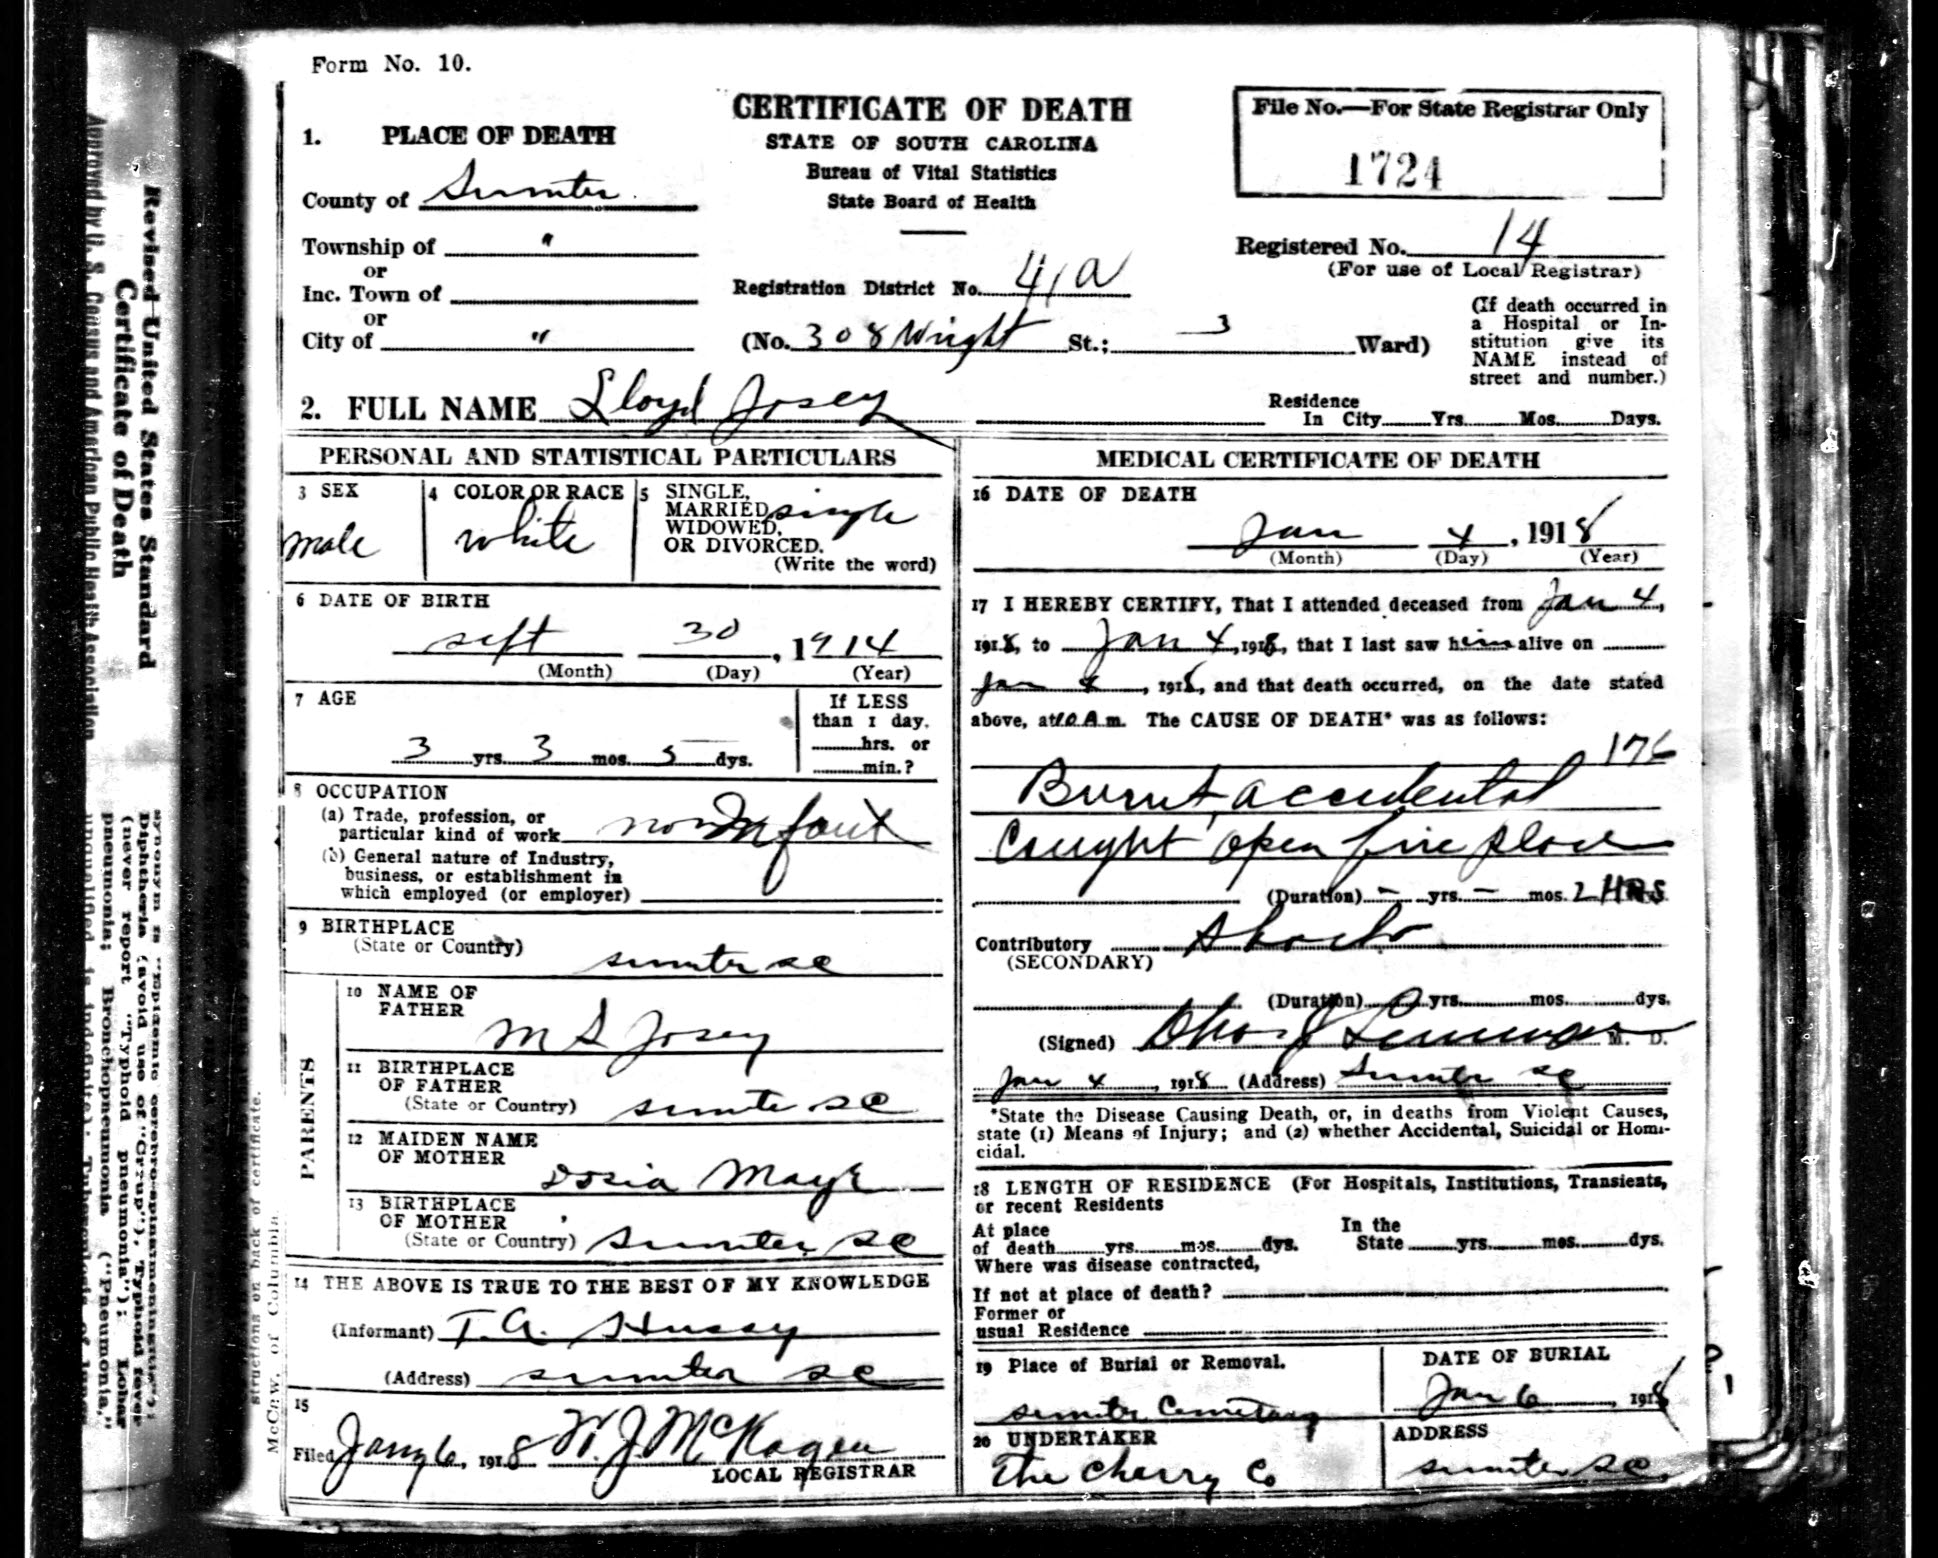 Form No. 10.
CERTIFICATE OF DEATH
STATE OF SOUTH CAROLINA
Bureau of Vital Statistics
State Board of Health
File No.—For State Registrar Only
1724
1. PLACE OF DEATH
County of Sumter
Township of "
or
Inc. Town of
or
City of "
Registration District No. 41a
Registered No. 14
(For use of Local Registrar)
(No. 308 Wright St.; 3 Ward)
(If death occurred in
a Hospital or In-
stitution give its
NAME instead of
street and number.)
2. FULL NAME Lloyd Josey
Residence
In City Yrs. Mos. Days.
PERSONAL AND STATISTICAL PARTICULARS
3 SEX
male
4 COLOR OR RACE
white
5 SINGLE,
MARRIED,
WIDOWED,
OR DIVORCED.
single
(Write the word)
6 DATE OF BIRTH
sept 30, 1914
(Month) (Day) (Year)
7 AGE
3 yrs. 3 mos. 5 dys.
If LESS
than 1 day,
hrs. or
min.?
8 OCCUPATION
(a) Trade, profession, or
particular kind of work Infant
(b) General nature of Industry,
business, or establishment in
which employed (or employer)
9 BIRTHPLACE
(State or Country)
sumter sc
PARENTS
10 NAME OF
FATHER
M S Josey
11 BIRTHPLACE
OF FATHER
(State or Country) sumter sc
12 MAIDEN NAME
OF MOTHER
Dosia
13 BIRTHPLACE
OF MOTHER
(State or Country) Sumter, SC
14 THE ABOVE IS TRUE TO THE BEST OF MY KNOWLEDGE
(Informant) T.A. Hussey
(Address) sumter sc
15
Filed Jany 6, 1918 W. J. McKagen
LOCAL REGISTRAR
MEDICAL CERTIFICATE OF DEATH
16 DATE OF DEATH
Jan 4, 1918
(Month) (Day) (Year)
17 I HEREBY CERTIFY, That I attended deceased from Jan 4,
1918, to Jan 4, 1918, that I last saw him alive on
Jan 4, 1918, and that death occurred, on the date stated
above, at 10 A m. The CAUSE OF DEATH* was as follows:
176
Burnt, accidental
Caught open fire place
(Duration) – yrs. – mos. 2 HRS
Contributory Shock
(SECONDARY)
(Duration) yrs. mos. dys.
(Signed) M. D.
Jan 4, 1918 (Address) Sumter sc
*State the Disease Causing Death, or, in deaths from Violent Causes,
state (1) Means of Injury; and (2) whether Accidental, Suicidal or Homi-
cidal.
18 LENGTH OF RESIDENCE (For Hospitals, Institutions, Transients,
or recent Residents
At place
of death yrs. mos. dys.
In the
State yrs. mos. dys.
Where was disease contracted,
If not at place of death?
Former or
usual Residence
19 Place of Burial or Removal.
sumter Cemetery
DATE OF BURIAL
Jan 6, 1918
20 UNDERTAKER
The Cherry Co
ADDRESS
sumter sc
Revised United States Standard
Certificate of Death
Approved by U. S. Census and American Public Health Association
Diphtheria (avoid use of "Croup"); Typhoid fever
(never report "Typhoid pneumonia"); Lobar
pneumonia; Bronchopneumonia ("Pneumonia,"
structions on back of certificate.
McCaw, of Columbia